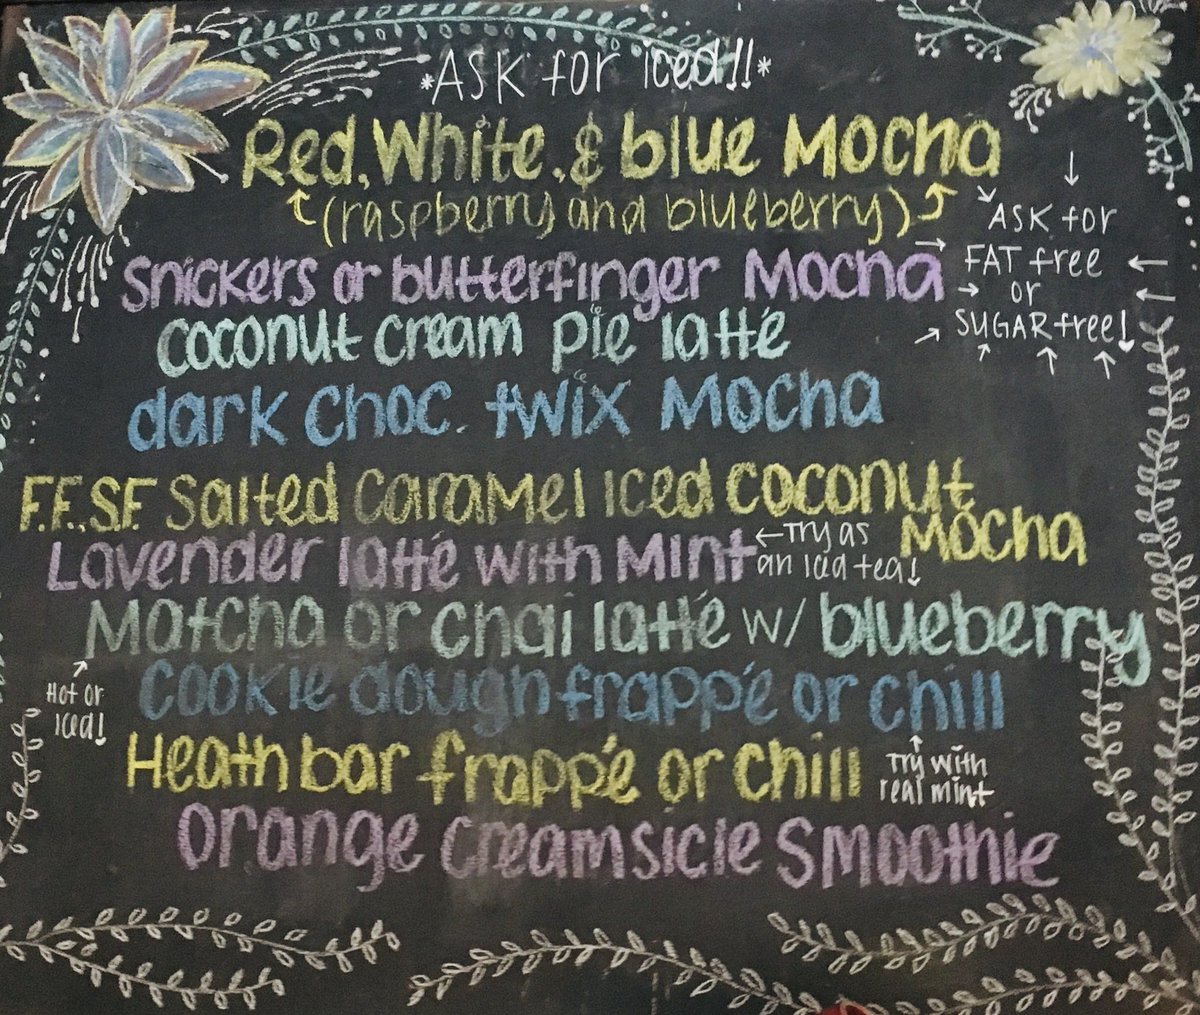 *ASK for iced!!*
Red, White, & blue Mocha
(raspberry and blueberry)
ASK for
FAT free
or
SUGAR free!
Snickers or butterfinger Mocha
coconut cream pie latté
dark Choc. twix Mocha
F.F., S.F. Salted Caramel Iced coconut
Mocha
Lavender latté with Mint
←Try as
an Iced tea!
Matcha or chai latté w/ blueberry
Hot or
Iced!
Cookie dough frappé or chill
Heath bar frappé or chill
Try with
real mint
Orange Creamsicle Smoothie